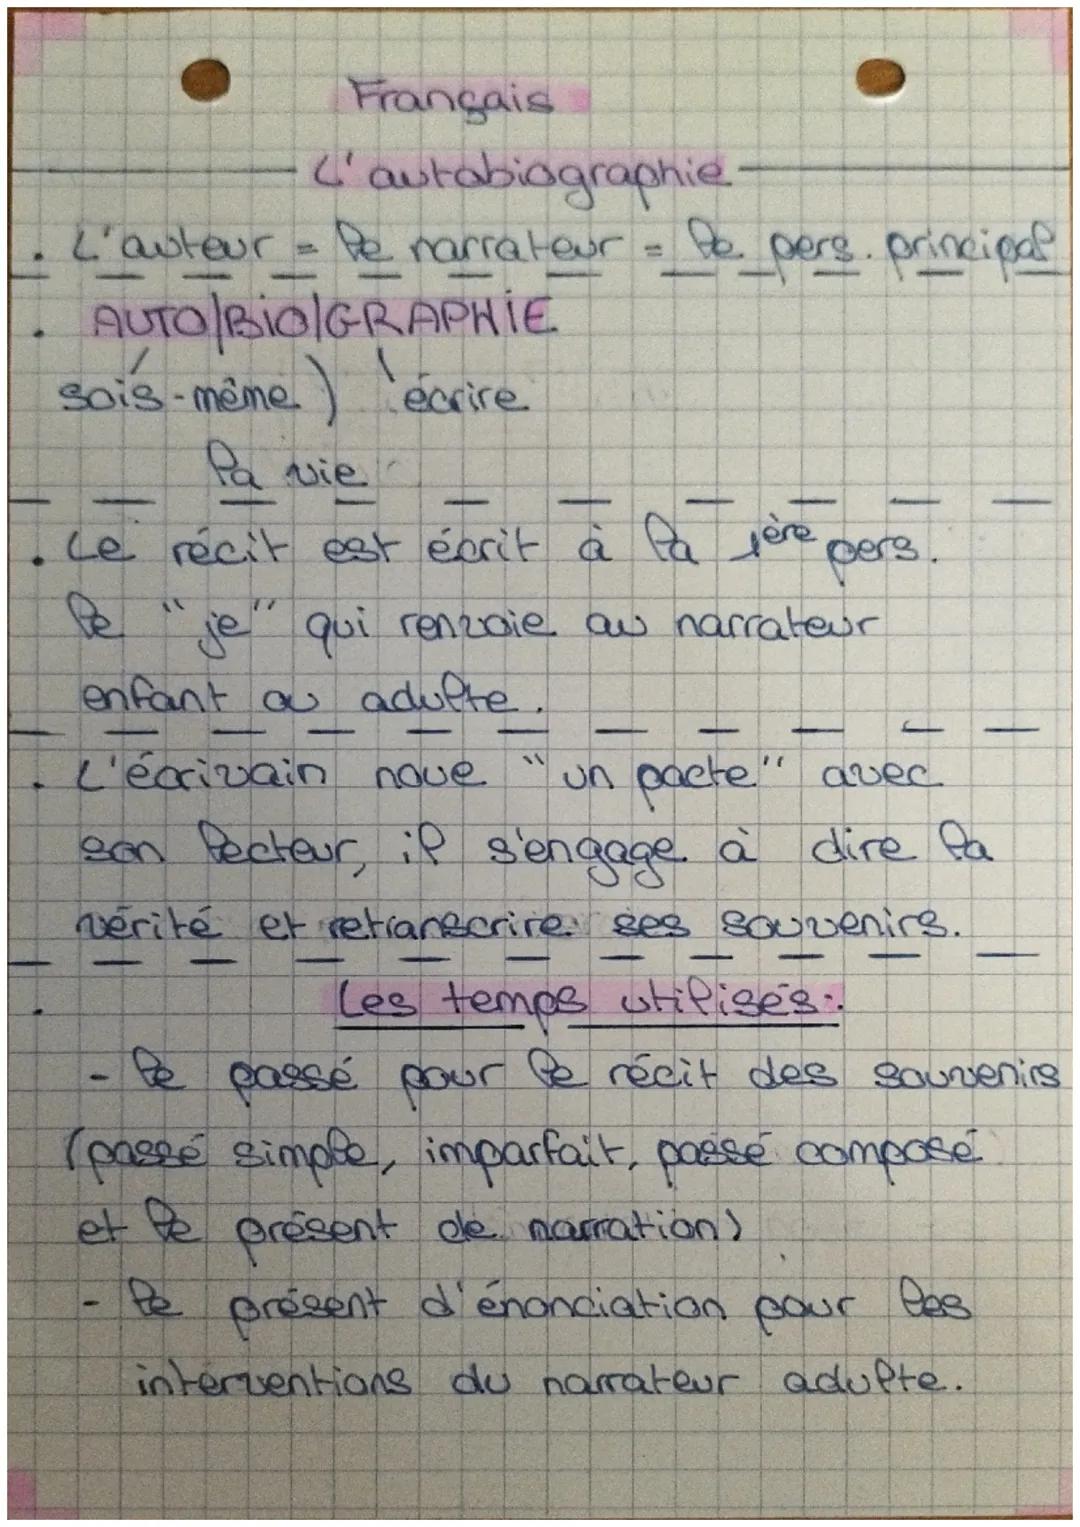 Français
L'autobiographie
. L'auteur = le narrateur = le pers. principal
. AUTO|BIO|GRAPHIE
sois-même ) écrire
la vie
. Le récit est écrit à la 1ère pers.
le "je" qui renvoie au narrateur
enfant ou adulte.
. L'écrivain noue "un pacte" avec
son lecteur, il s'engage à dire la
vérité et retranscrire ses souvenirs.
. Les temps utilisés :
- le passé pour le récit des souvenirs
(passé simple, imparfait, passé composé
et le présent de narration)
- le présent d'énonciation pour les
interventions du narrateur adulte.